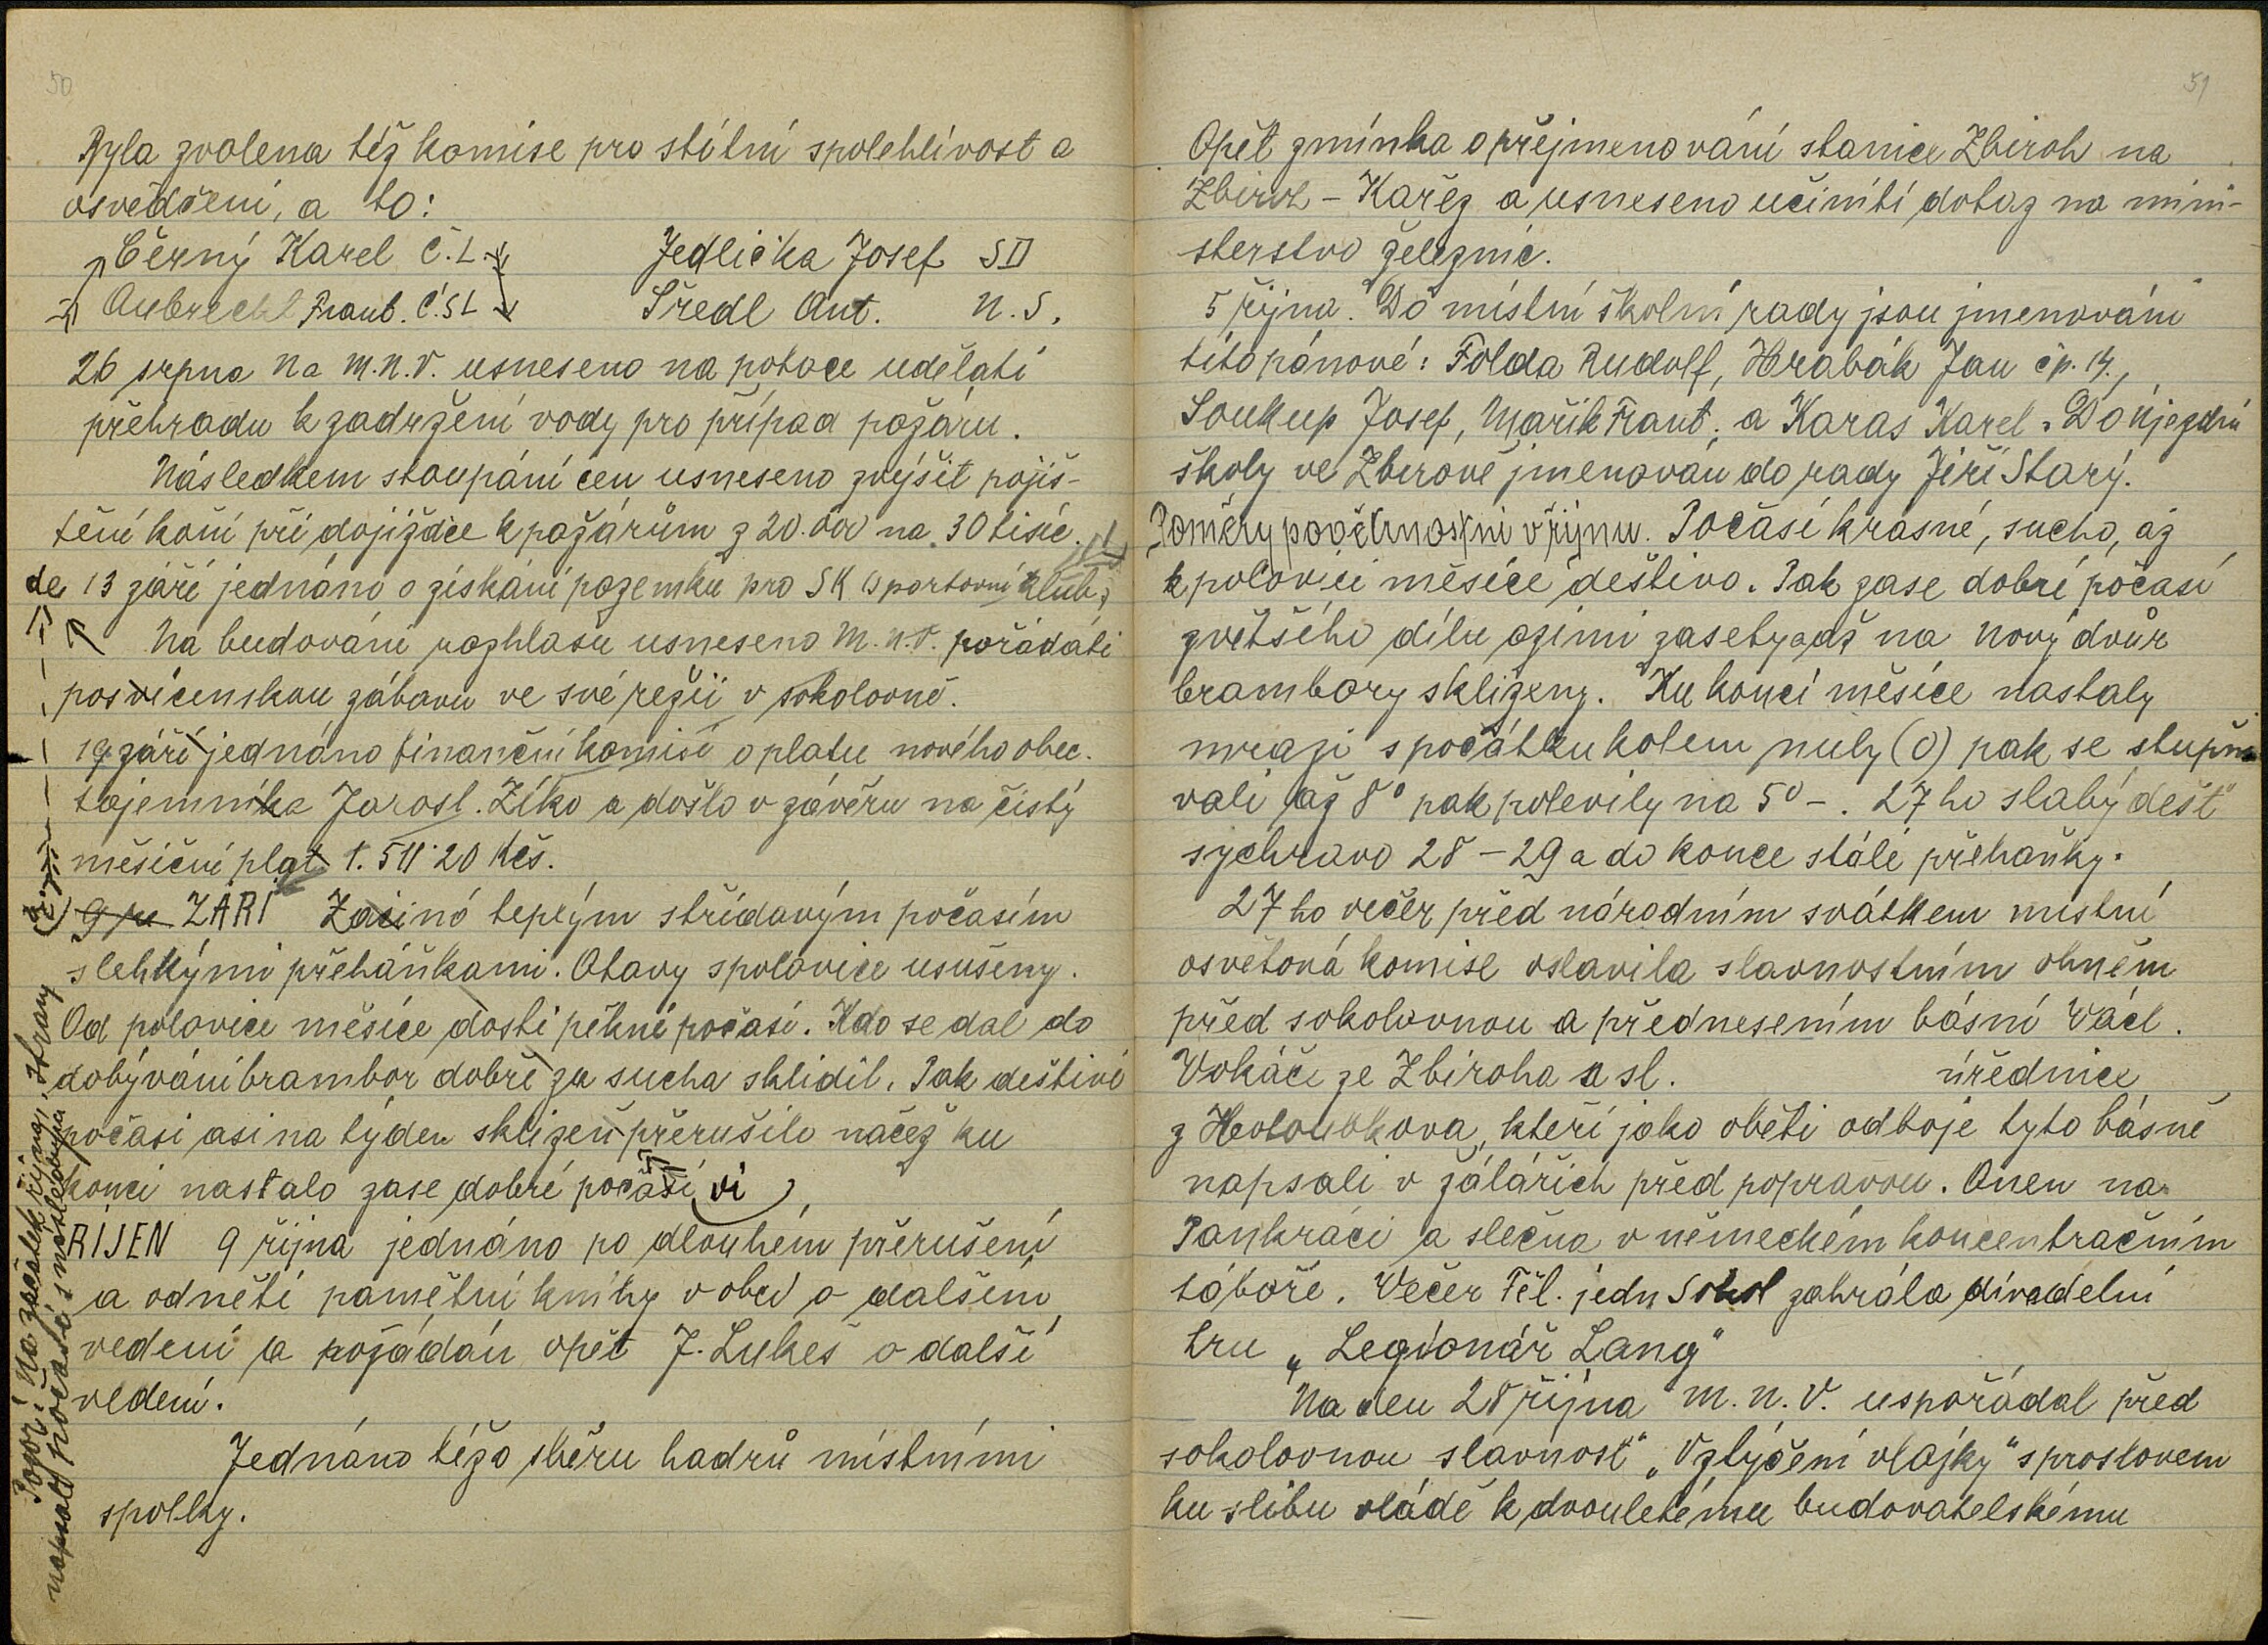 50
Byla zvolena též komise pro státní spolehlivost a
osvědčení, a to:
Černý Karel Č.L. Jedlička Josef SD
Aubrecht Frant. Č.SL Šředl Ant. N.S.
26 srpna na M.N.V. usneseno na potoce udělati
přehradu k zadržení vody pro případ požáru.
Následkem stoupání cen usneseno zvýšit pojiš-
tění koní při dojížďce k požárům z 20.000 na 30 tisíc.
13 září jednáno o získání pozemku pro SK (sportovní klub)
Na budování rozhlasu usneseno M.N.V. pořádati
posvícenskou zábavu ve své režii v sokolovně.
19 září jednáno finanční komisí o platu nového obec.
tajemníka Jarosl. Zíka a došlo v závěru na čistý
měsíční plat 1.511·20 Kčs.
ZÁŘÍ Začíná teplým střídavým počasím
s lehkými přeháňkami. Otavy s polovice usušeny.
Od polovice měsíce dosti pěkné počasí. Kdo se dal do
dobývání brambor dobře za sucha sklidil. Pak deštivé
počasí asi na týden sklizeň přerušilo načež ku
konci nastalo zase dobré počasí
ŘÍJEN 9 října jednáno po dlouhém přerušení
a odnětí pamětní knihy v obci o dalším
vedení a požádán opět J. Lukeš o další
vedení.
Jednáno též o sběru hadrů místními
spolky.
Pozor! Na začátek října, strany
napsat počasí s následujna
51
Opět zmínka o přejmenování stanice Zbiroh na
Zbiroh – Kařez a usneseno učiniti dotaz na mini-
sterstvo železnic.
5 října. Do místní školní rady jsou jmenováni
tito pánové: Folda Rudolf, Hrabák Jan čp. 14.,
Soukup Josef, Mařík Frant. a Karas Karel. Do újezdní
školy ve Zbirově jmenován do rady Jiří Starý.
Poměry povětrnostní v říjnu. Počasí krásné, sucho, až
k polovici měsíce deštivo. Pak zase dobré počasí
z většího dílu ozimi zasety až na Nový dvůr
brambory sklizeny. Ku konci měsíce nastaly
mrazi s počátku kolem nuly (0) pak se stupňo
vali až 8° pak polevily na 5° –. 27 ho slabý déšť
sychravo 28 – 29 a do konce stálé přeháňky.
27 ho večer před národním svátkem místní
osvětová komise oslavila slavnostním ohněm
před sokolovnou a přednesením básní Václ.
Vokáče ze Zbiroha a sl. úřednice
z Holoubkova, kteří jako oběti odboje tyto básně
napsali v žalářích před popravou. Onen na
Pankráci a slečna v německém koncentračním
táboře. Večer Těl. jedn Sokol zahrála divadelní
hru „Legionář Lang"
Na den 28 října M.N.V. uspořádal před
sokolovnou slavnost „Vztyčení vlajky" s proslovem
ku slibu vládě k dvouletému budovatelskému